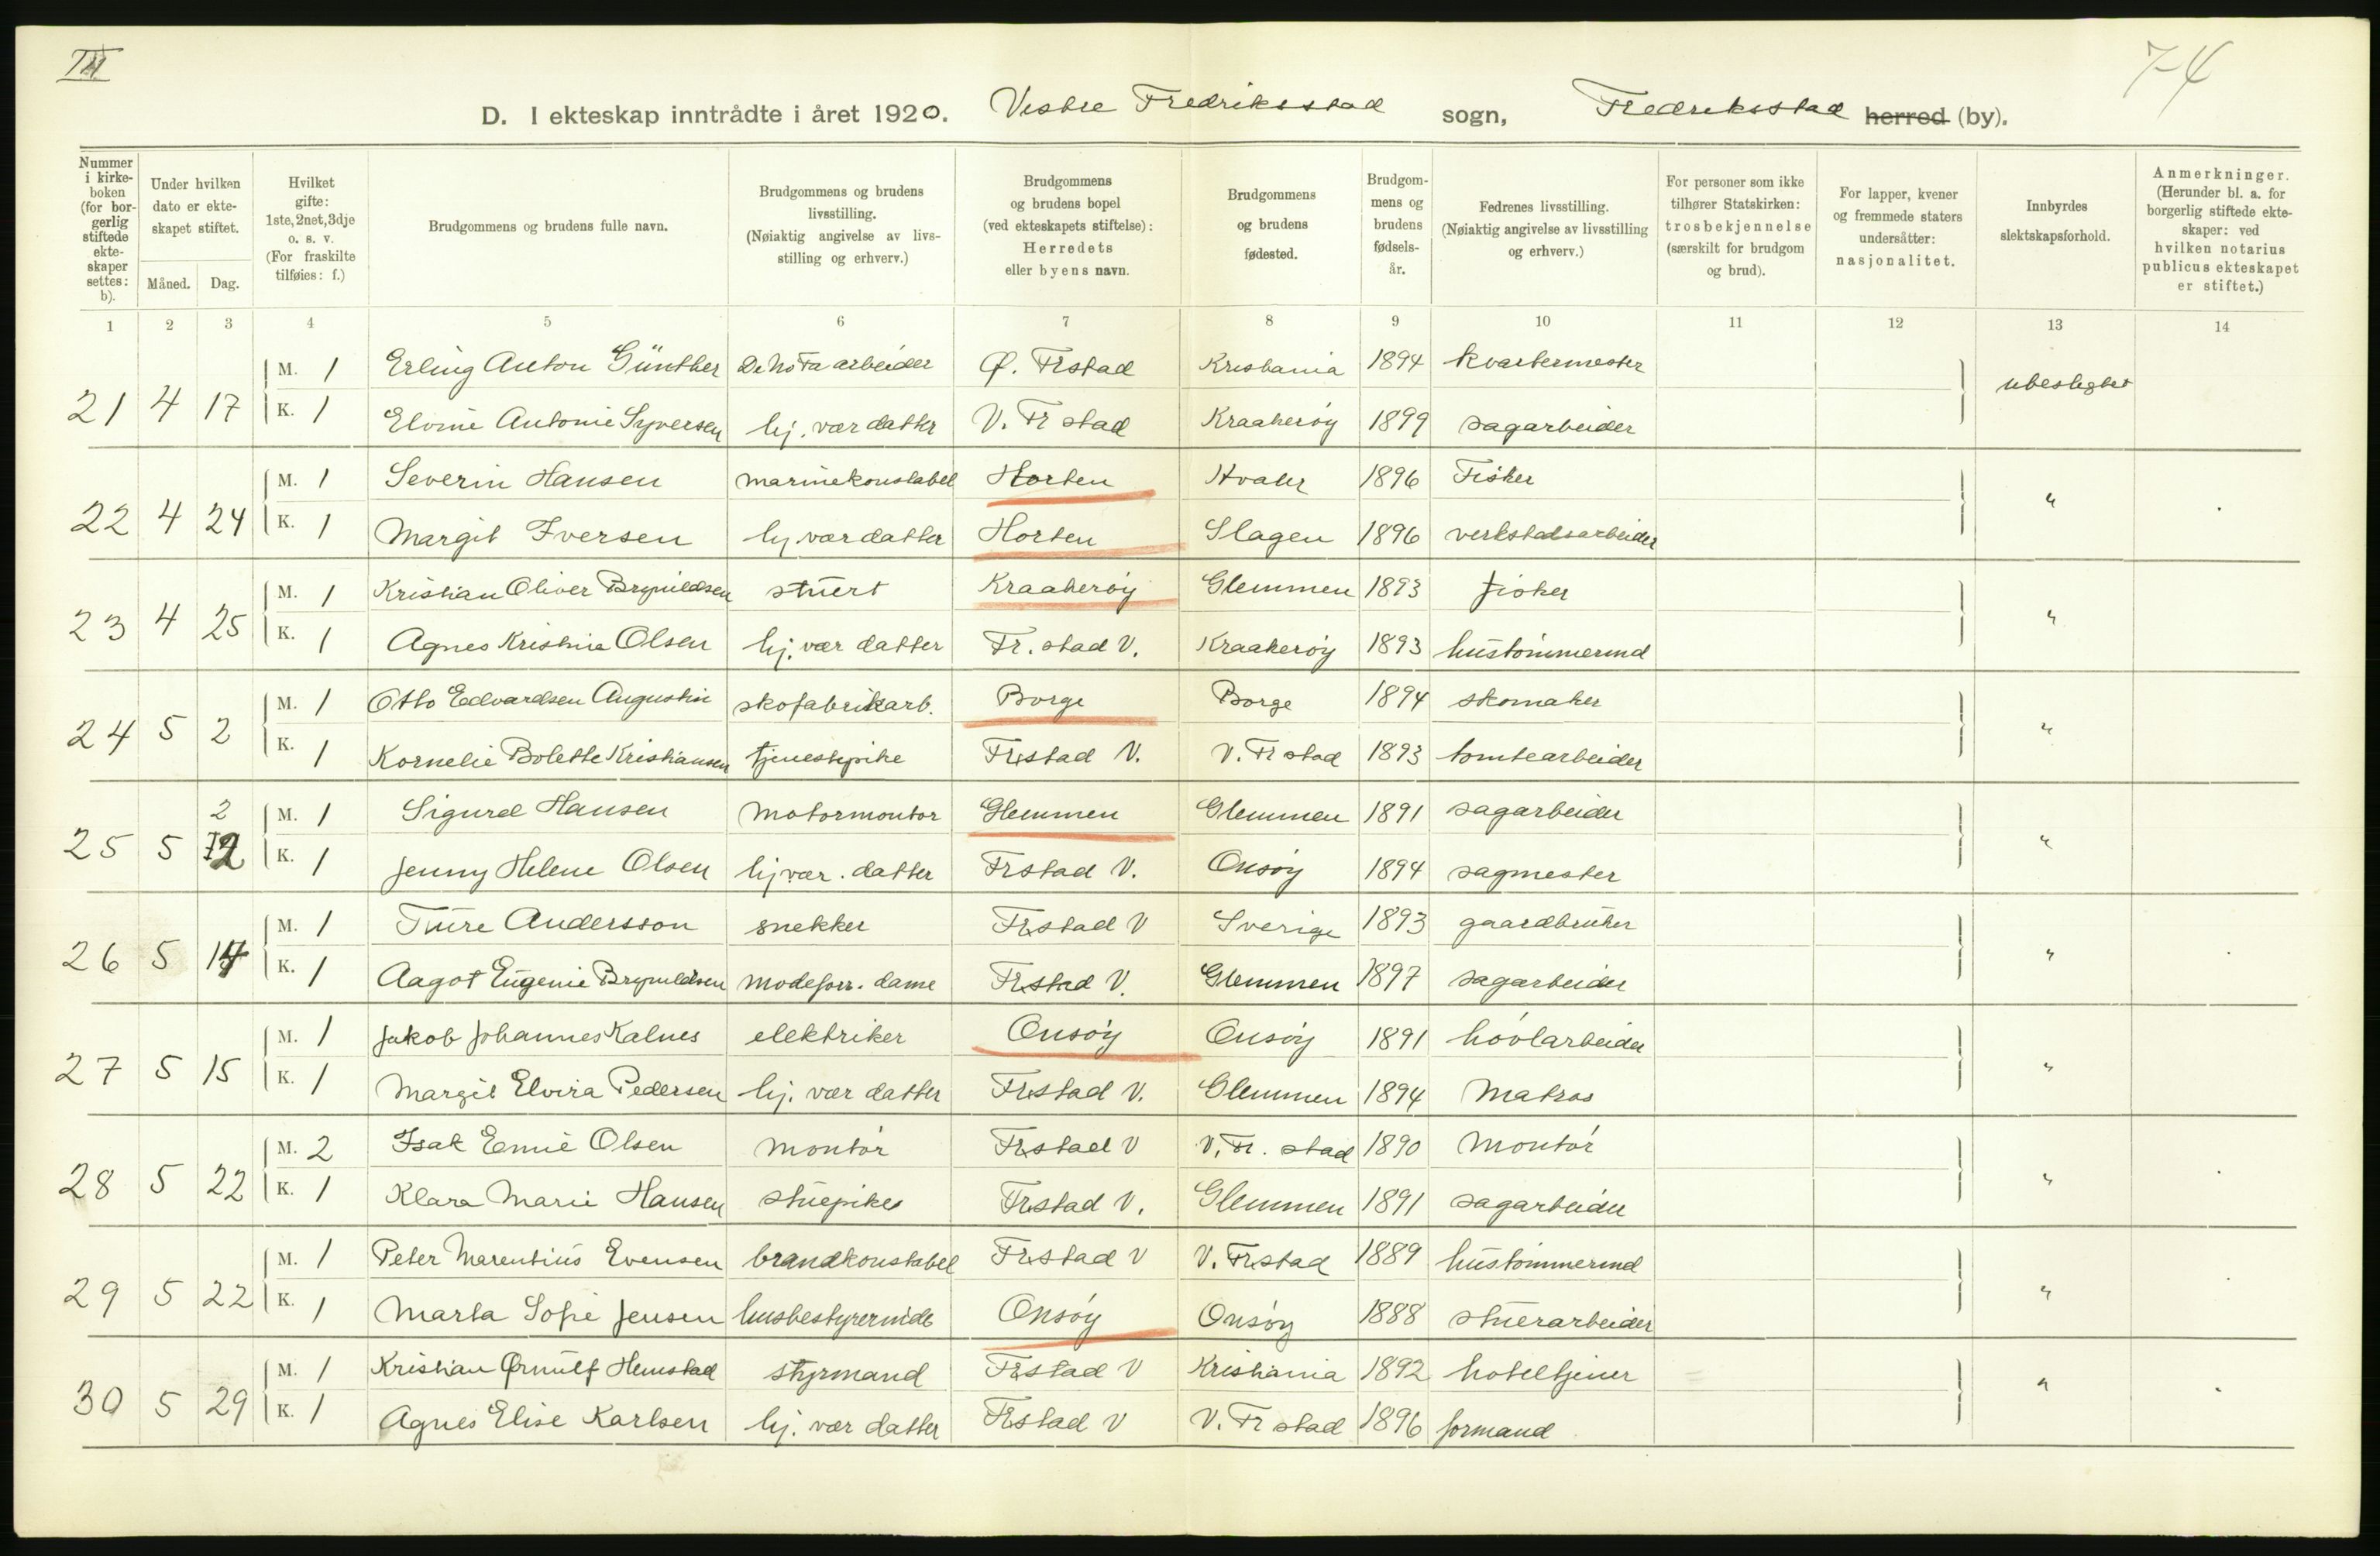 III
74
D. I ekteskap inntrådte i året 1920. Vestre Fredriksstad sogn, Fredriksstad herred (by).
Nummer i kirke-boken (for bor-gerlig stiftede ekte-skaper settes: b).
Under hvilken dato er ekte-skapet stiftet.
Måned. Dag.
Hvilket gifte: 1ste, 2net, 3dje o. s. v. (For fraskilte tilføies: f.)
Brudgommens og brudens fulle navn.
Brudgommens og brudens livsstilling. (Nøiaktig angivelse av livs-stilling og erhverv.)
Brudgommens og brudens bopel (ved ekteskapets stiftelse): Herredets eller byens navn.
Brudgommens og brudens fødested.
Brudgom-mens og brudens fødsels-år.
Fedrenes livsstilling. (Nøiaktig angivelse av livsstilling og erhverv.)
For personer som ikke tilhører Statskirken: trosbekjennelse (særskilt for brudgom og brud).
For lapper, kvener og fremmede staters undersåtter: nasjonalitet.
Innbyrdes slektskapsforhold.
Anmerkninger. (Herunder bl. a. for borgerlig stiftede ekte-skaper: ved hvilken notarius publicus ekteskapet er stiftet.)
1 2 3 4 5 6 7 8 9 10 11 12 13 14
M. 1 Erling Anton Günther DeNoFa arbeider Ø. Frstad Kristiania 1894 kvartermester
21 4 17 ubeslegtet
K. 1 Elvine Antonie Syversen hj. vær datter V. Fr stad Kraakeröy 1899 sagarbeider
M. 1 Severin Hansen marinekonstabel Horten Hvaler 1896 Fisker
22 4 24 "
K. 1 Margit Iversen hj vær datter Horten Slagen 1896 verkstadsarbeider
M. 1 Kristian Oliver Brynildsen stuert Kraakeröy Glemmen 1893 fisker
23 4 25 "
K. 1 Agnes Kristine Olsen hj. vær datter Fr. stad V. Kraakeröy 1893 hustömmermd
M. 1 Otto Edvardsen Augustin skofabrikarb. Borge Borge 1894 skomaker
24 5 2 "
K. 1 Kornelie Bolette Kristiansen tjenestepike Frstad V. V. Fr stad 1893 tomtearbeider
2
M. 1 Sigurd Hansen Motormontør Glemmen Glemmen 1891 sagarbeider
25 5 12 "
K. 1 Jenny Helene Olsen hj vær. datter Frstad V. Onsöy 1894 sagmester
M. 1 Ture Andersson snekker Frstad V Sverige 1893 gaardbruker
26 5 14 "
K. 1 Aagot Eugenie Brynildsen modeforr. dame Frstad V. Glemmen 1897 sagarbeider
M. 1 Jakob Johannes Kalnes elektriker Onsöy Onsöy 1891 hövlarbeider
27 5 15 "
K. 1 Margit Elvira Pedersen hj. vær datter Frstad V. Glemmen 1894 Matros
M. 2 Isak Emil Olsen montör Frstad V V. Fr. stad 1890 Montör
28 5 22 "
K. 1 Klara Marie Hansen stuepike Frstad V. Glemmen 1891 sagarbeider
M. 1 Peter Marentius Evensen brandkonstabel Frstad V V. Frstad 1889 hustömmermd
29 5 22 "
K. 1 Marta Sofie Jensen husbestyrerinde Onsöy Onsöy 1888 stuerarbeider
M. 1 Kristian Ørnulf Hemstad styrmand Frstad V Kristiania 1892 hoteltjener
30 5 29 "
K. 1 Agnes Elise Karlsen hj. vær datter Frstad V V. Fr stad 1896 formand